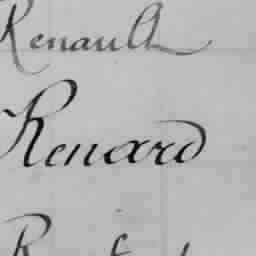 Renault
Renard